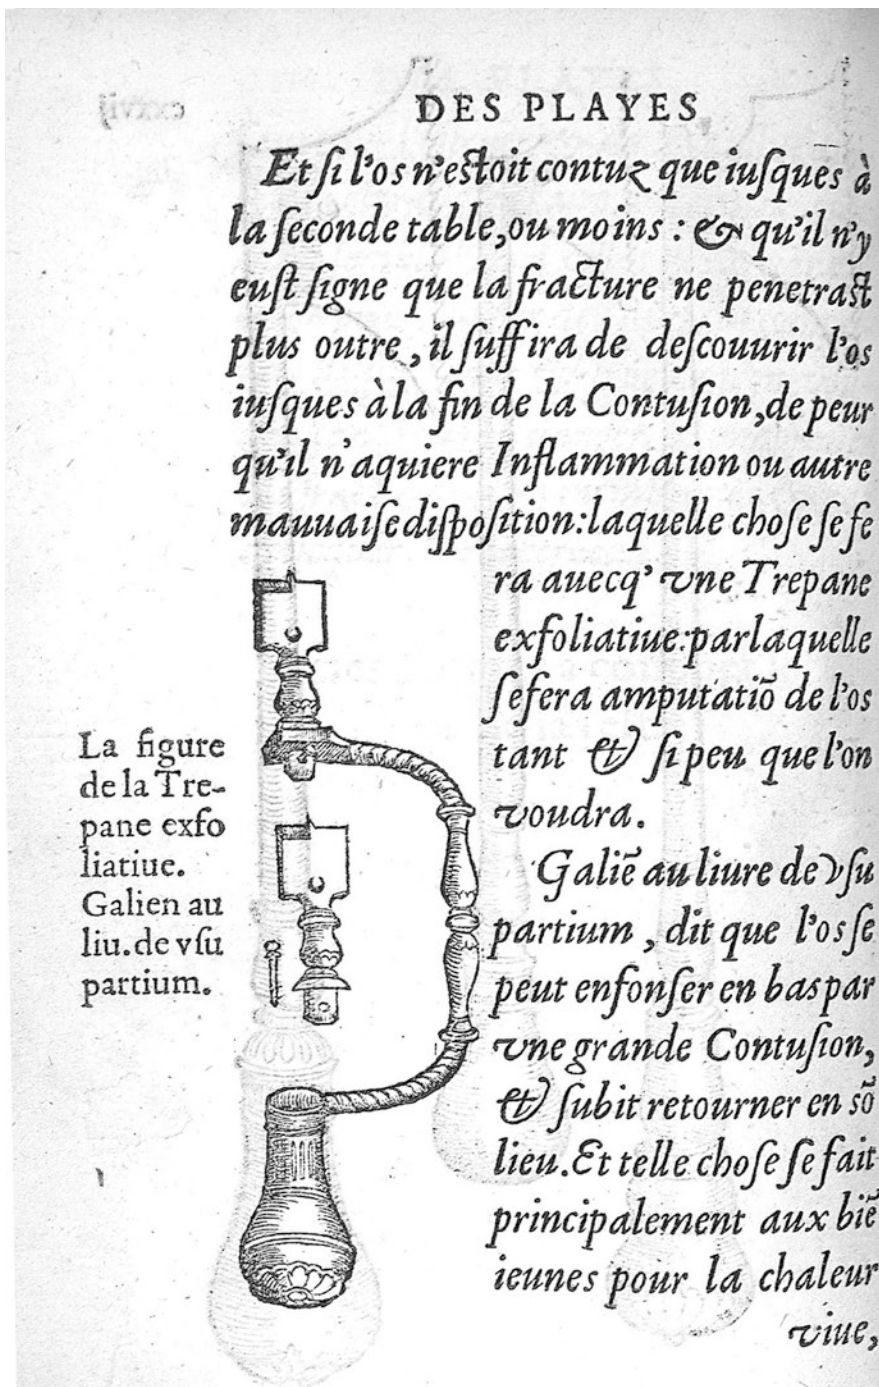 DES PLAYES
Et si l'os n'estoit contuz que iusques à
la seconde table, ou moins : & qu'il n'y
eust signe que la fracture ne penetrast
plus outre, il suffira de descouurir l'os
iusques à la fin de la Contusion, de peur
qu'il n'aquiere Inflammation ou autre
mauuaise disposition: laquelle chose se fe
ra auecq' vne Trepane
exfoliatiue: par laquelle
se fera amputatiõ de l'os
tant & si peu que l'on
voudra.
Galiẽ au liure de vsu
partium, dit que l'os se
peut enfonser en bas par
vne grande Contusion,
& subit retourner en sõ
lieu. Et telle chose se fait
principalement aux biẽ
ieunes pour la chaleur
viue,
La figure
de la Tre-
pane exfo
liatiue.
Galien au
liu. de vsu
partium.